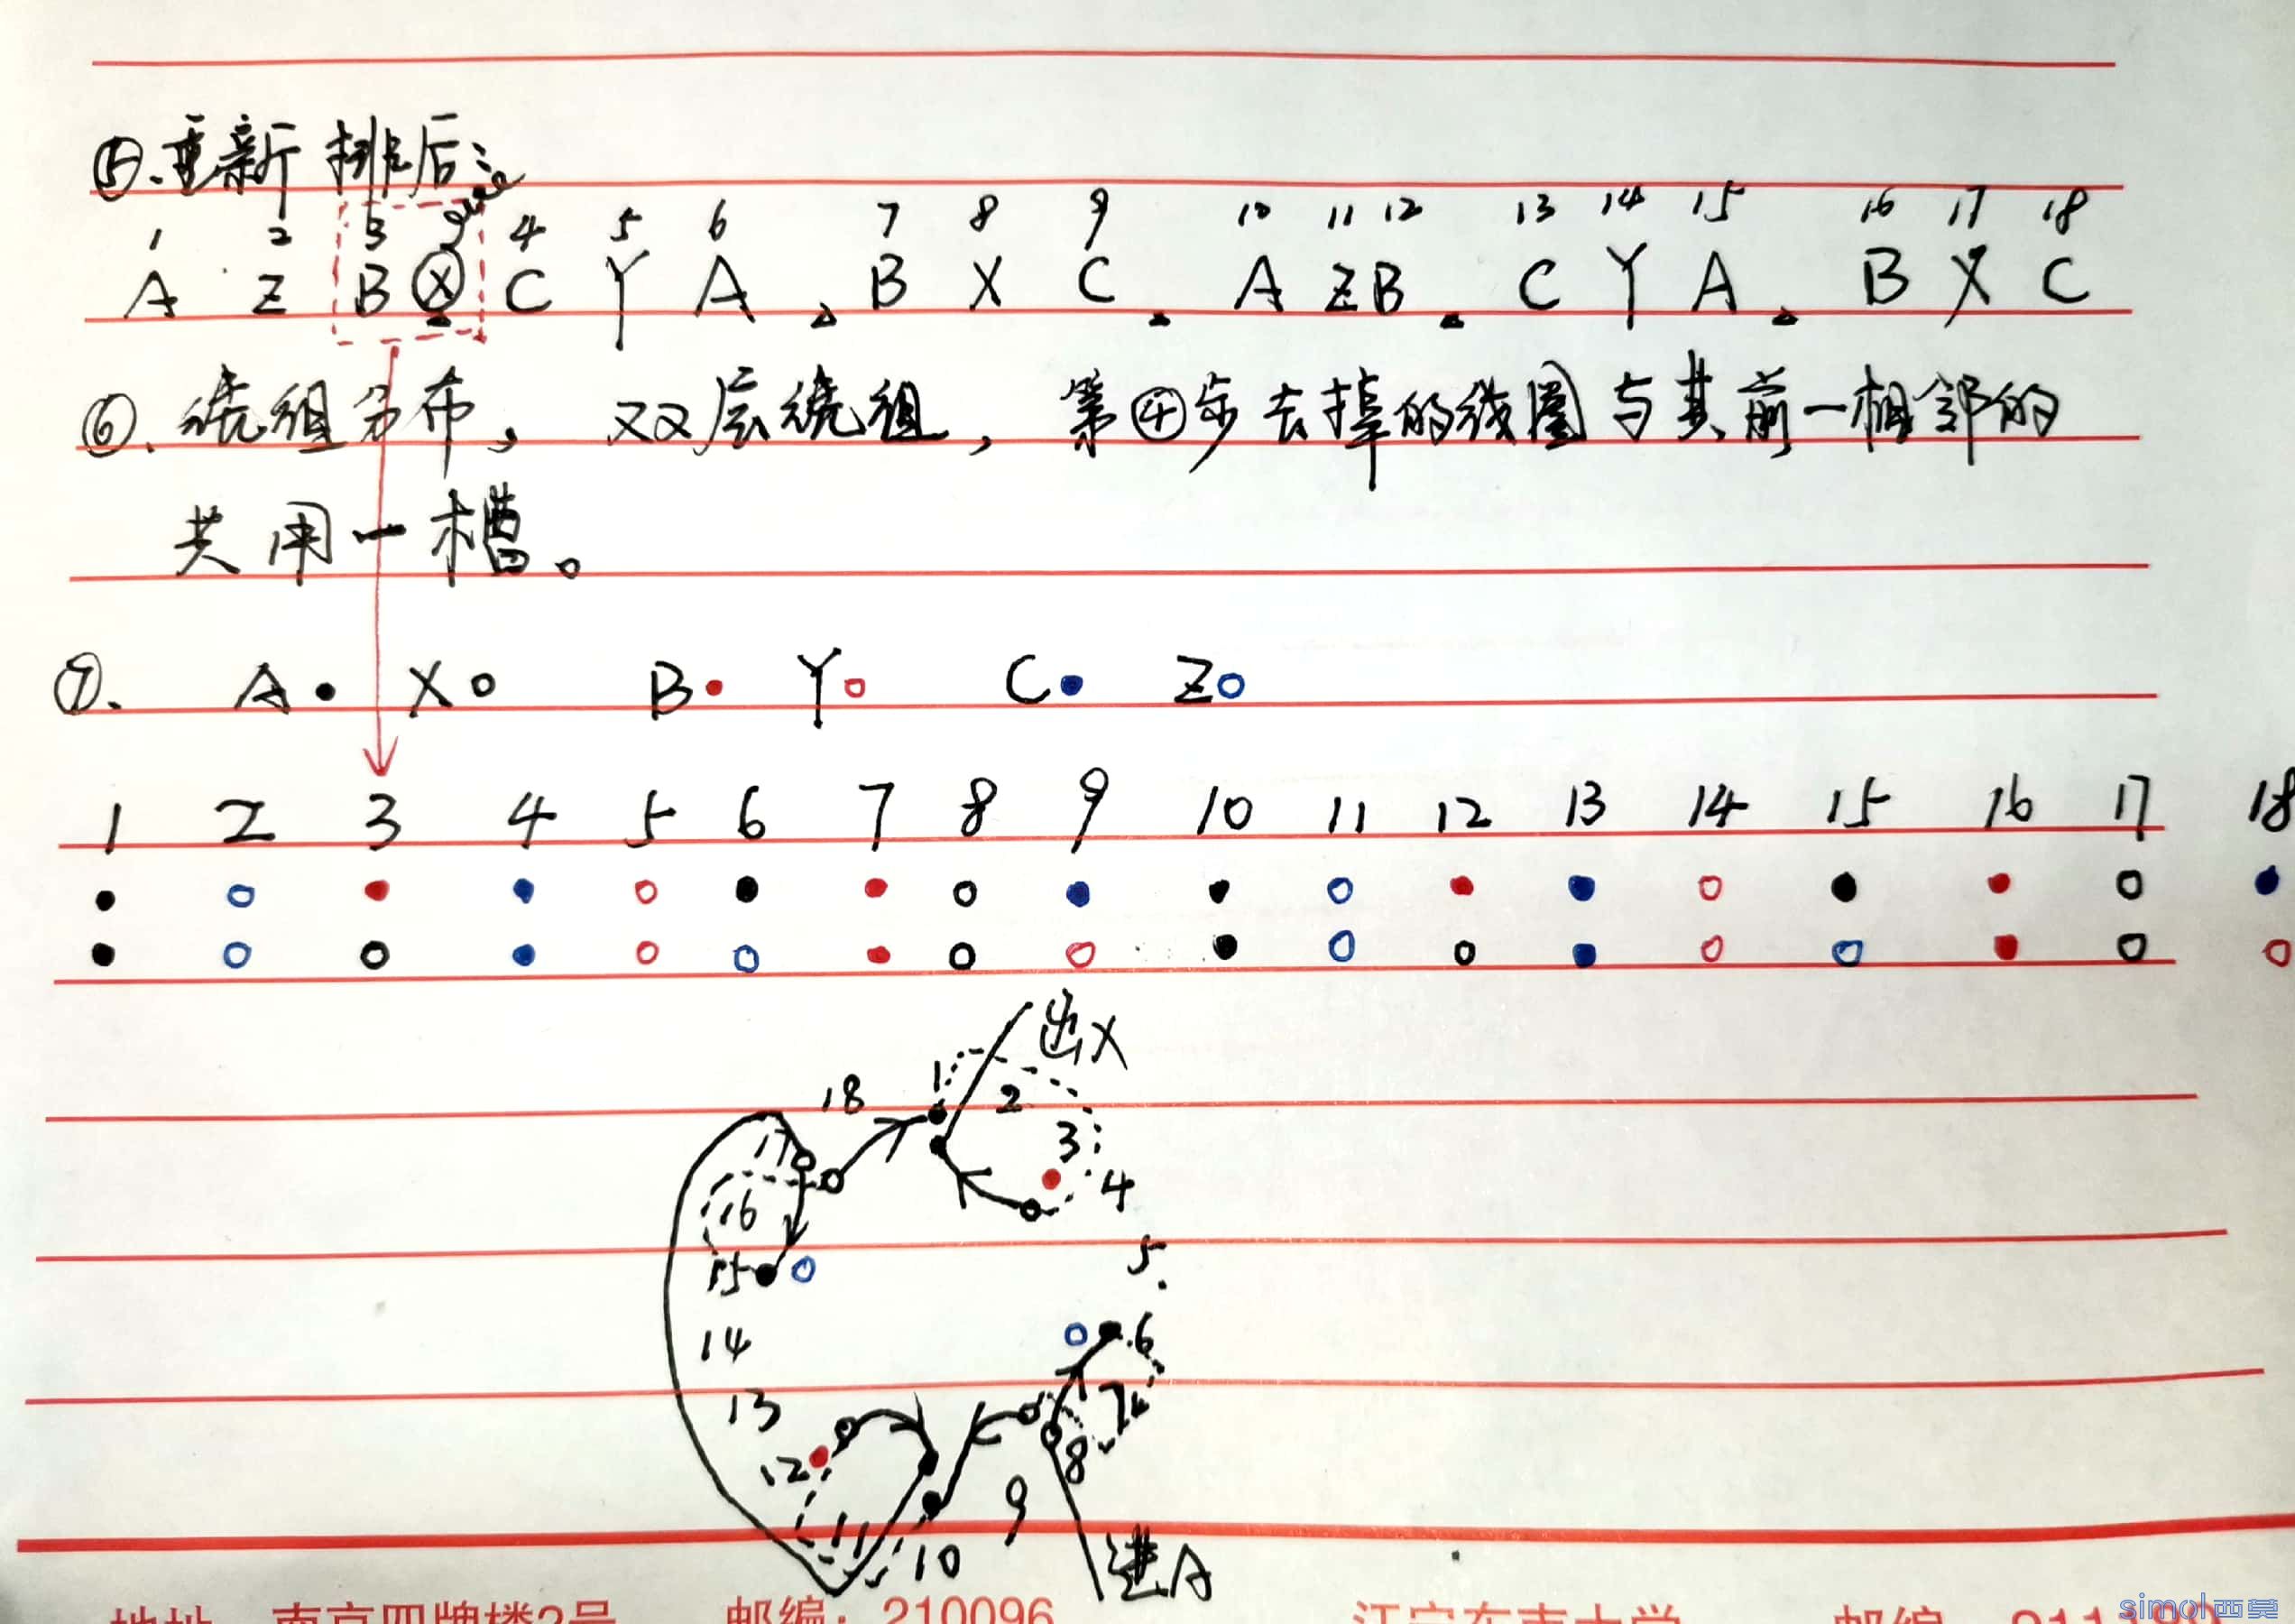 ⑤.重新排后:
1 2 3 4 5 6 7 8 9 10 11 12 13 14 15 16 17 18
A Z B X C Y A B X C A Z B C Y A B X C
⑥.绕组分布,双层绕组,第④步去掉的线圈与其前一相邻的
共用一槽。
⑦. A X B Y C Z
1 2 3 4 5 6 7 8 9 10 11 12 13 14 15 16 17 18
出X
18 1 2
17 3
16 4
15 5
14 6
13 7
12 8
11 10 9
进A
地址 南京四牌楼2号 邮编:210096 江宁东南大学 邮编
simol西莫